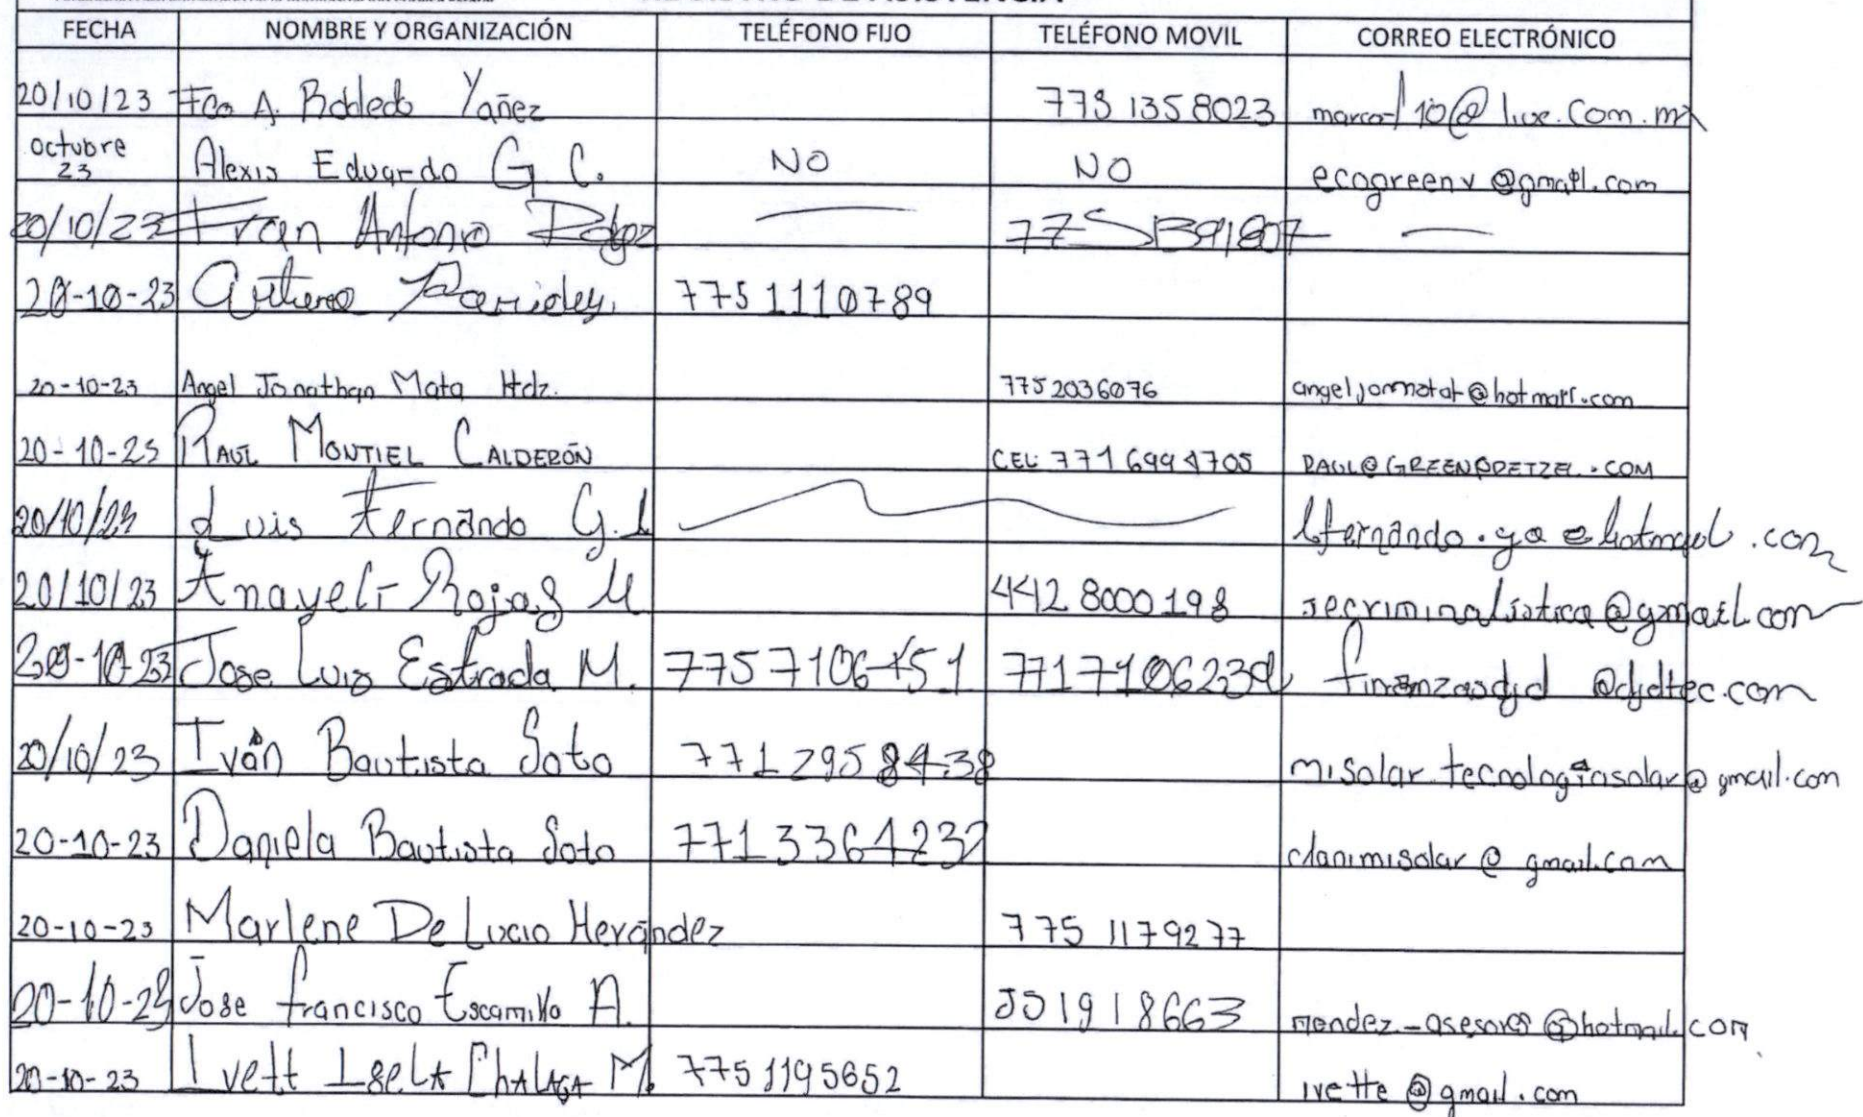 REGISTRO DE ASISTENCIA
FECHA NOMBRE Y ORGANIZACIÓN TELÉFONO FIJO TELÉFONO MOVIL CORREO ELECTRÓNICO
20/10/23 Fco A. Robledo Yañez 775 1358023 marco-l10@live.com.mx
octubre 23 Alexis Eduardo G. C. NO NO ecogreenv@gmail.com
20/10/23 Fran Antonio — 775 1391807 —
20-10-23 Arturo 775 1110789
20-10-23 Angel Jonathan Mata Hdz. 775 2036076 @hotmail.com
20-10-23 RAÚL MONTIEL CALDERÓN CEL: 771 6994705 RAUL@GREENPRETZEL.COM
20/10/23 Luis Fernando G. L lfernando.ga@hotmail.com
20/10/23 Anayeli Rojas M 442 8000198 secriminalistica@gmail.com
20-10-23 Jose Luis Estrada M. 775 7106451 771 7106232 finanzasdjd @djdtec.com
20/10/23 Iván Bautista Soto 771 2958438 misolar.tecnologiasolar@gmail.com
20-10-23 Daniela Bautista Soto 771 3364232 danimisolar@gmail.com
20-10-23 Marlene De Lucio Herández 775 1179277
20-10-23 Jose francisco Escamilla A. 551918663 mendez-asesores@hotmail.com
20-10-23 Ivett Isela M. 775 1195652 ivette@gmail.com